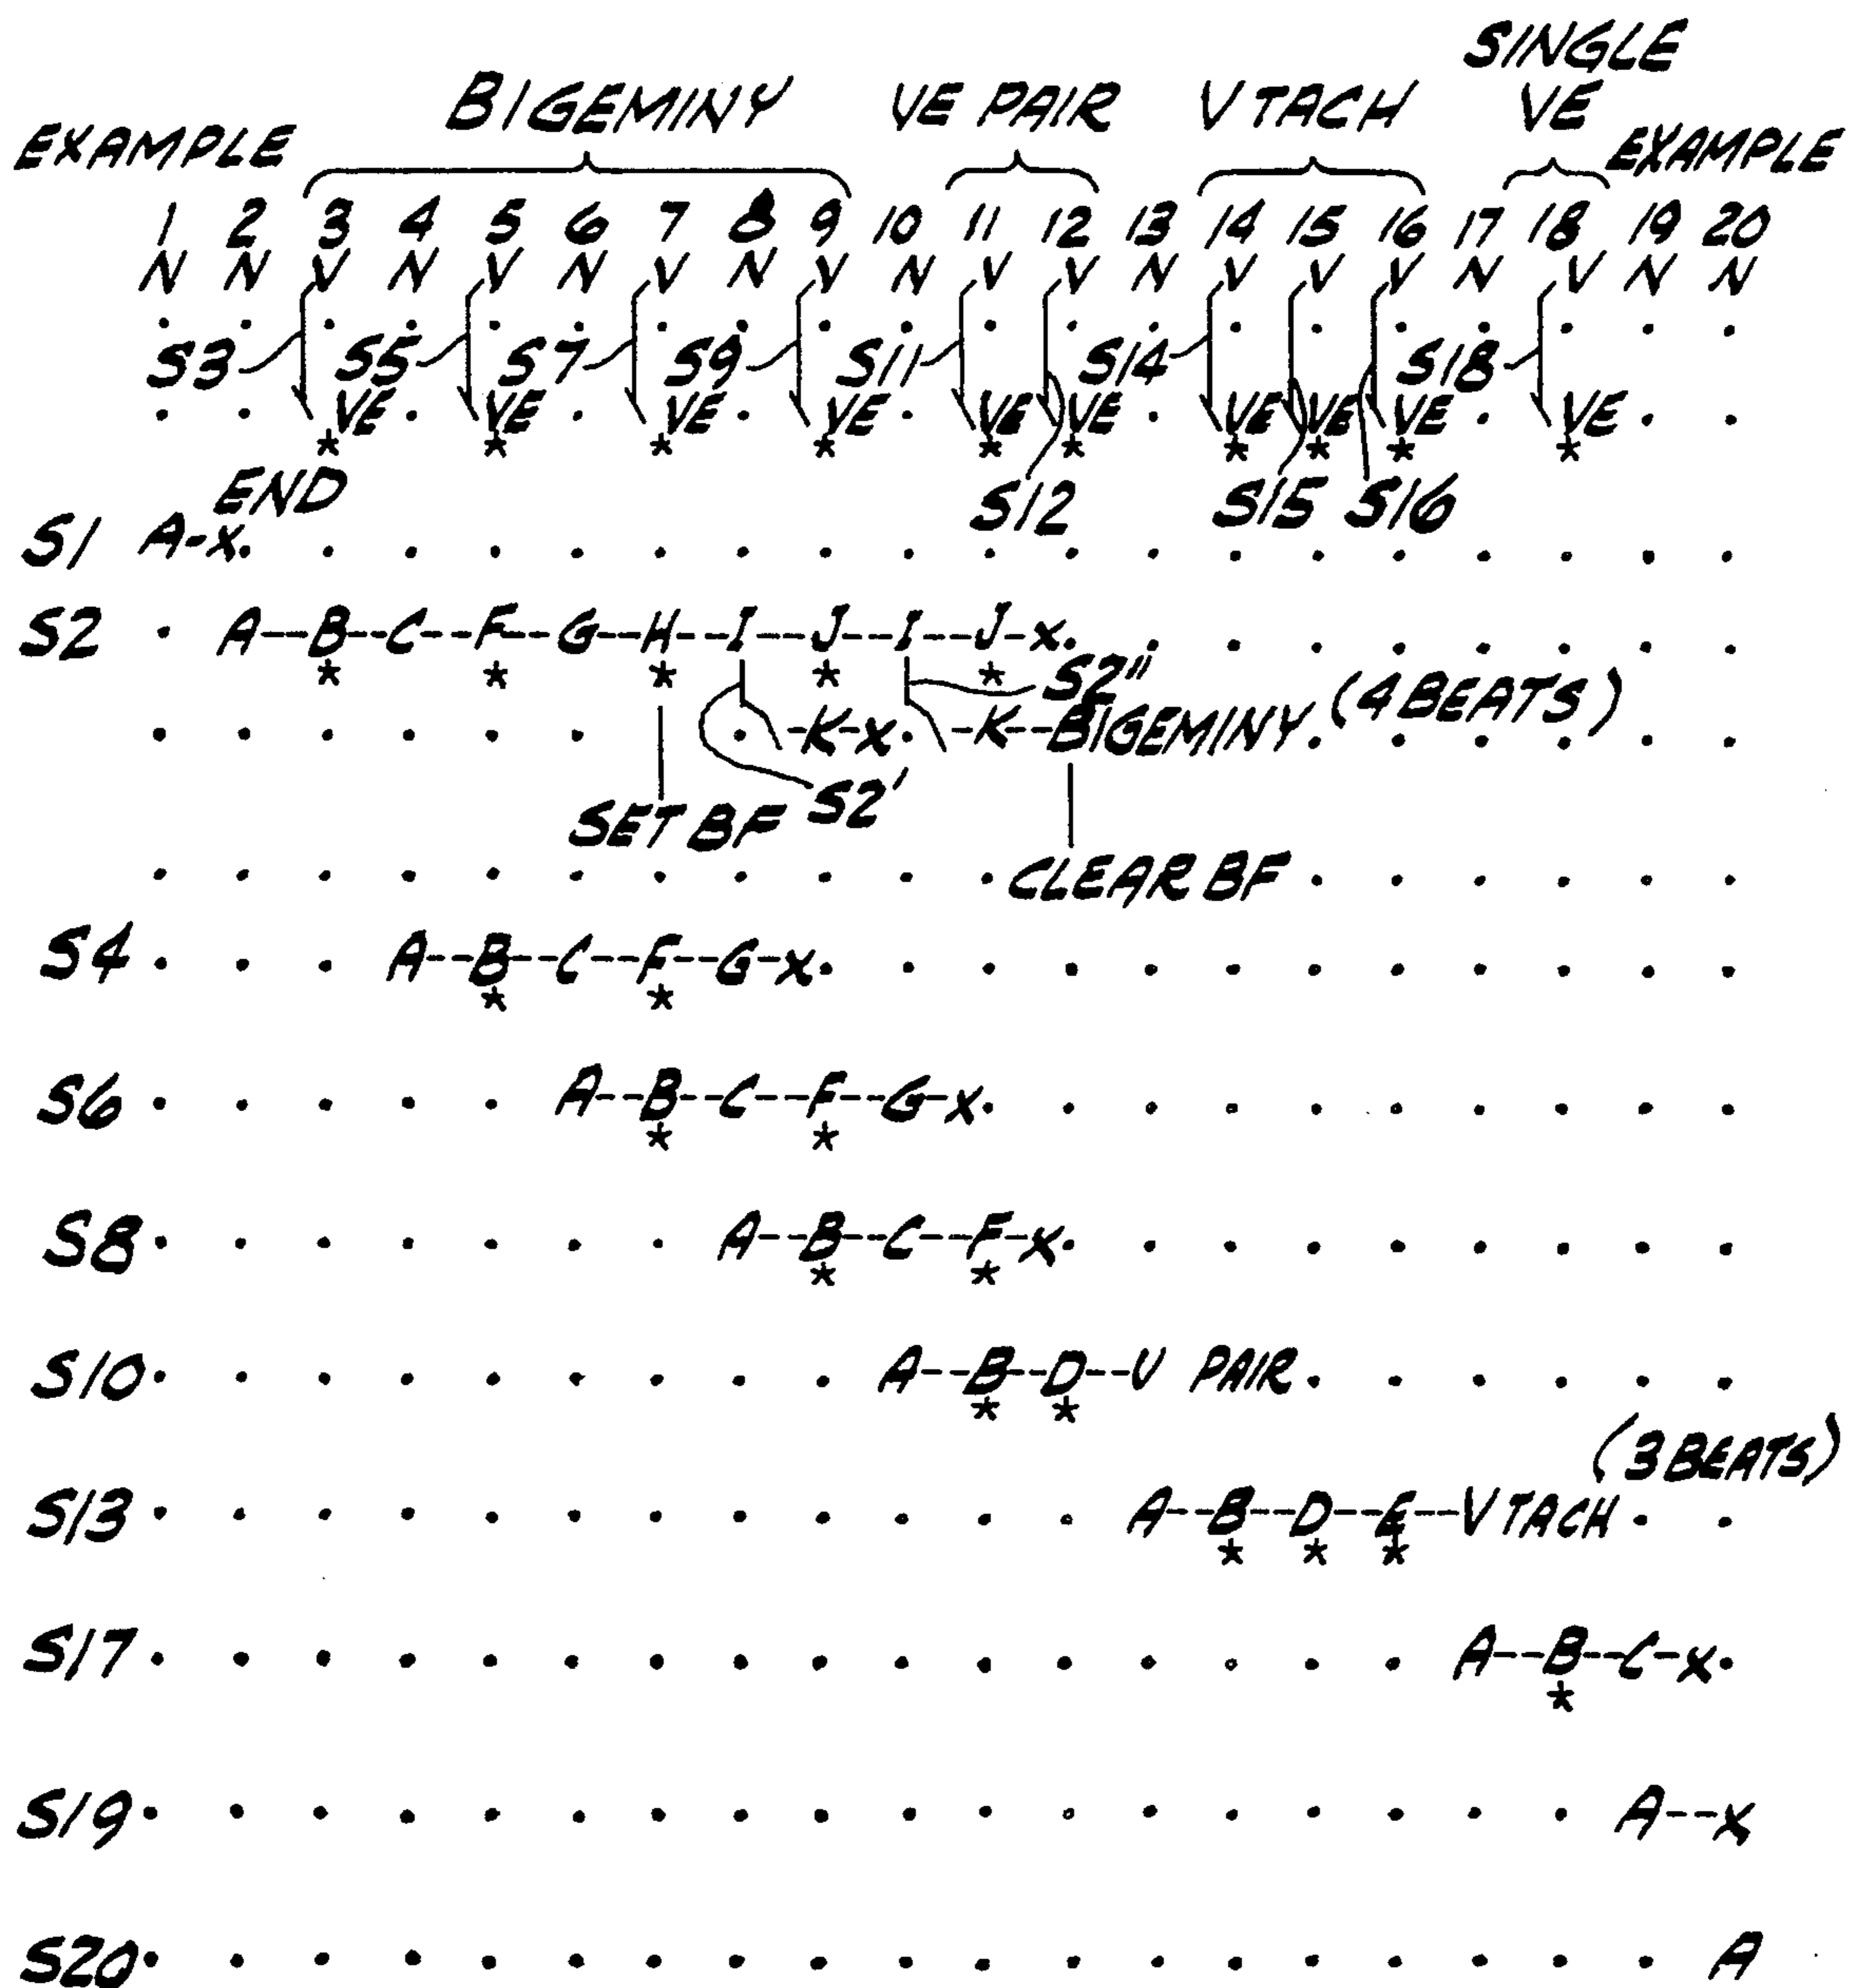 SINGLE
BIGEMINY VE PAIR V TACH VE
EXAMPLE EXAMPLE
1 2 3 4 5 6 7 8 9 10 11 12 13 14 15 16 17 18 19 20
N N V N V N V N V N V V N V V V N V N N
. . . . . . . . . . . . . . . . . . . .
S3 S5 S7 S9 S11 S14 S18
. . VE . VE . VE . VE . VE VE . VE VE VE . VE . .
* * * * * * * * * *
END S12 S15 S16
S1 A-X. . . . . . . . . . . . . . . . . . .
S2 . A--B--C--F--G--H--I--J--I--J-X. . . . . . . .
* * * * * S2"
. . . . . . . -K-X. -K--BIGEMINY. (4 BEATS) . . . . .
SET BF S2'
. . . . . . . . . . . CLEAR BF . . . . . .
S4 . . . A--B--C--F--G-X. . . . . . . . . . . .
* *
S6 . . . . . A--B--C--F--G-X. . . . . . . . . .
* *
S8 . . . . . . . A--B--C--F-X. . . . . . . . .
* *
S10 . . . . . . . . . A--B--D--V PAIR. . . . . .
* *
(3 BEATS)
S13 . . . . . . . . . . . . A--B--D--E--V TACH. .
* * *
S17 . . . . . . . . . . . . . . . . A--B--C-X.
*
S19 . . . . . . . . . . . . . . . . . . A--X
S20 . . . . . . . . . . . . . . . . . . . A